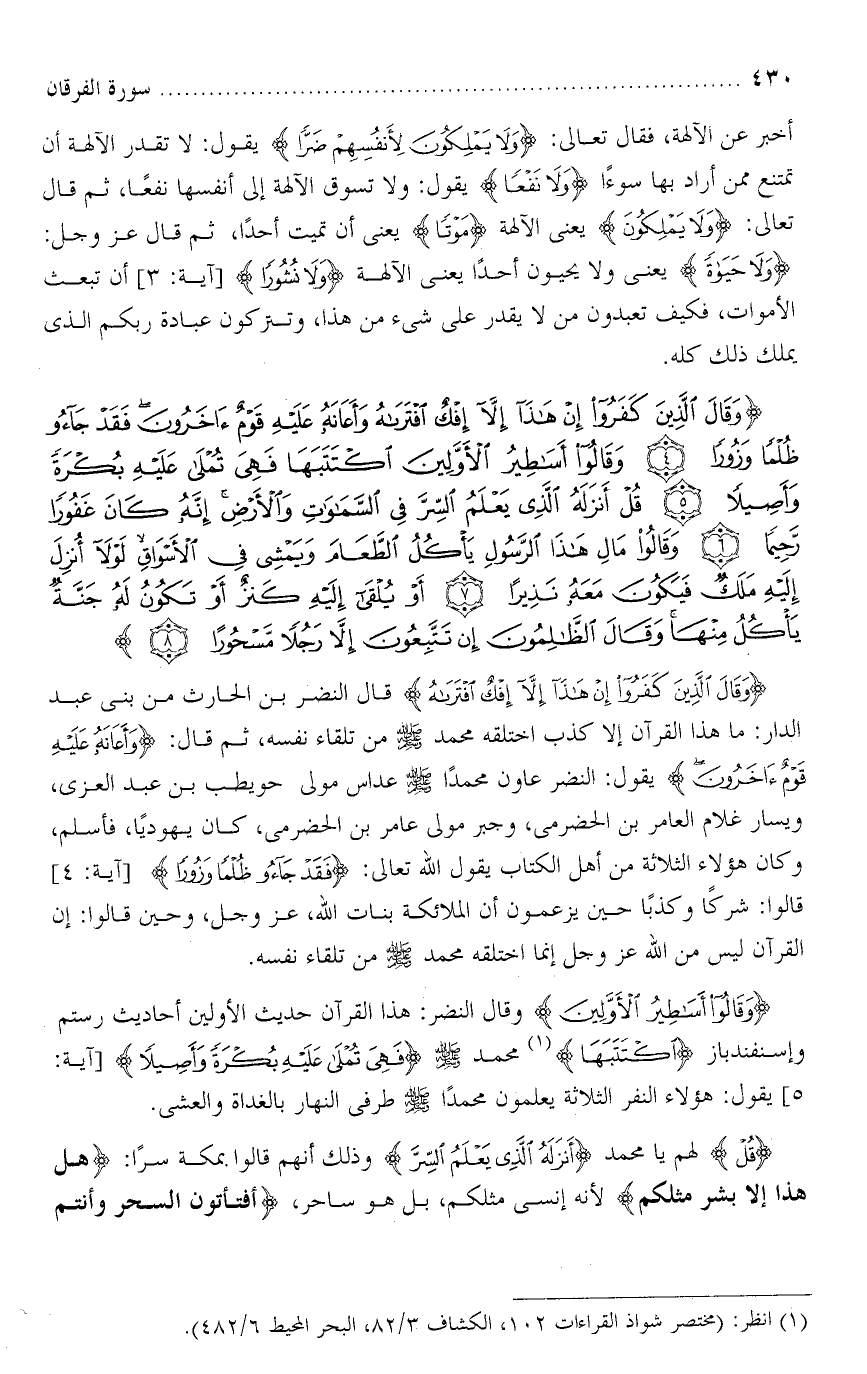 ٤٣٠ ........................................................................ سورة الفرقان
أخبر عن الآلهة، فقال تعالى: ﴿وَلَا يَمْلِكُونَ لِأَنفُسِهِمْ ضَرًّا﴾ يقول: لا تقدر الآلهة أن
تمتنع ممن أراد بها سوءًا ﴿وَلَا نَفْعًا﴾ يقول: ولا تسوق الآلهة إلى أنفسها نفعًا، ثم قال
تعالى: ﴿وَلَا يَمْلِكُونَ﴾ يعنى الآلهة ﴿مَوْتًا﴾ يعنى أن تميت أحدًا، ثم قال عز وجل:
﴿وَلَا حَيَوٰةً﴾ يعنى ولا يحيون أحدًا يعنى الآلهة ﴿وَلَا نُشُورًا﴾ [آية: ٣] أن تبعث
الأموات، فكيف تعبدون من لا يقدر على شىء من هذا، وتتركون عبادة ربكم الذى
يملك ذلك كله.
﴿وَقَالَ ٱلَّذِينَ كَفَرُوٓا۟ إِنْ هَـٰذَآ إِلَّآ إِفْكٌ ٱفْتَرَىٰهُ وَأَعَانَهُۥ عَلَيْهِ قَوْمٌ ءَاخَرُونَ ۖ فَقَدْ جَآءُو
ظُلْمًا وَزُورًا ٤ وَقَالُوٓا۟ أَسَـٰطِيرُ ٱلْأَوَّلِينَ ٱكْتَتَبَهَا فَهِىَ تُمْلَىٰ عَلَيْهِ بُكْرَةً
وَأَصِيلًا ٥ قُلْ أَنزَلَهُ ٱلَّذِى يَعْلَمُ ٱلسِّرَّ فِى ٱلسَّمَـٰوَٰتِ وَٱلْأَرْضِ ۚ إِنَّهُۥ كَانَ غَفُورًا
رَّحِيمًا ٦ وَقَالُوا۟ مَالِ هَـٰذَا ٱلرَّسُولِ يَأْكُلُ ٱلطَّعَامَ وَيَمْشِى فِى ٱلْأَسْوَاقِ ۙ لَوْلَآ أُنزِلَ
إِلَيْهِ مَلَكٌ فَيَكُونَ مَعَهُۥ نَذِيرًا ٧ أَوْ يُلْقَىٰٓ إِلَيْهِ كَنزٌ أَوْ تَكُونُ لَهُۥ جَنَّةٌ
يَأْكُلُ مِنْهَا ۚ وَقَالَ ٱلظَّـٰلِمُونَ إِن تَتَّبِعُونَ إِلَّا رَجُلًا مَّسْحُورًا ٨ ﴾
﴿وَقَالَ ٱلَّذِينَ كَفَرُوٓا۟ إِنْ هَـٰذَآ إِلَّآ إِفْكٌ ٱفْتَرَىٰهُ﴾ قال النضر بن الحارث من بنى عبد
الدار: ما هذا القرآن إلا كذب اختلقه محمد ﷺ من تلقاء نفسه، ثم قال: ﴿وَأَعَانَهُۥ عَلَيْهِ
قَوْمٌ ءَاخَرُونَ ۖ﴾ يقول: النضر عاون محمدًا ﷺ عداس مولى حويطب بن عبد العزى،
ويسار غلام العامر بن الحضرمى، وجبر مولى عامر بن الحضرمى، كان يهوديًا، فأسلم،
وكان هؤلاء الثلاثة من أهل الكتاب يقول الله تعالى: ﴿فَقَدْ جَآءُو ظُلْمًا وَزُورًا﴾ [آية: ٤]
قالوا: شركًا وكذبًا حين يزعمون أن الملائكة بنات الله، عز وجل، وحين قالوا: إن
القرآن ليس من الله عز وجل إنما اختلقه محمد ﷺ من تلقاء نفسه.
﴿وَقَالُوٓا۟ أَسَـٰطِيرُ ٱلْأَوَّلِينَ﴾ وقال النضر: هذا القرآن حديث الأولين أحاديث رستم
وإسنفندباز ﴿ٱكْتَتَبَهَا﴾(١) محمد ﷺ ﴿فَهِىَ تُمْلَىٰ عَلَيْهِ بُكْرَةً وَأَصِيلًا﴾ [آية:
٥] يقول: هؤلاء النفر الثلاثة يعلمون محمدًا ﷺ طرفى النهار بالغداة والعشى.
﴿قُلْ﴾ لهم يا محمد ﴿أَنزَلَهُ ٱلَّذِى يَعْلَمُ ٱلسِّرَّ﴾ وذلك أنهم قالوا بمكة سرًا: ﴿هل
هذا إلا بشر مثلكم﴾ لأنه إنسى مثلكم، بل هو ساحر، ﴿أفتأتون السحر وأنتم
(١) انظر: (مختصر شواذ القراءات ١٠٢، الكشاف ٨٢/٣، البحر المحيط ٤٨٢/٦).